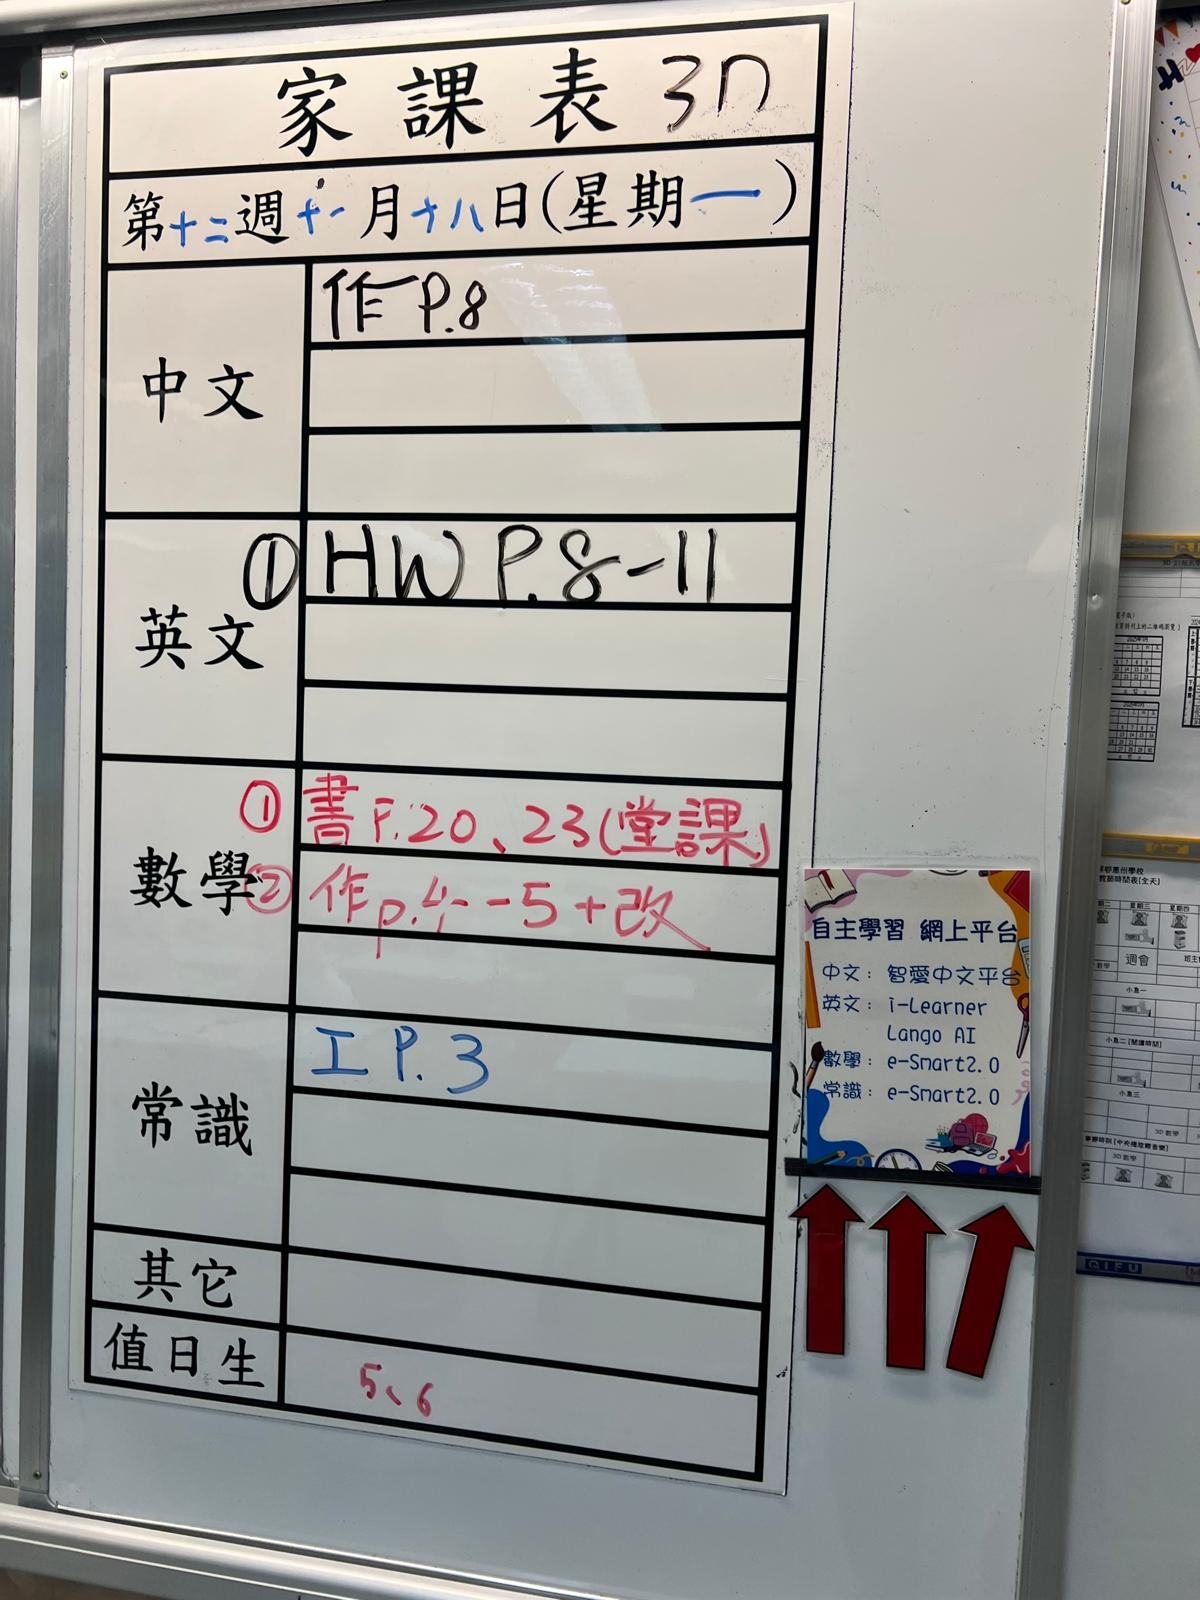 家課表 3D
第十二週十一月十八日(星期一)
中文
作 P.8
英文
① HW P.8-11
數學
① 書 P.20、23(堂課)
② 作 P.4-5+改
常識
工 P.3
其它
值日生
5、6
自主學習 網上平台
中文: 智愛中文平台
英文: i-Learner
Lango AI
數學: e-Smart2.0
常識: e-Smart2.0
QIFU
3D 數學